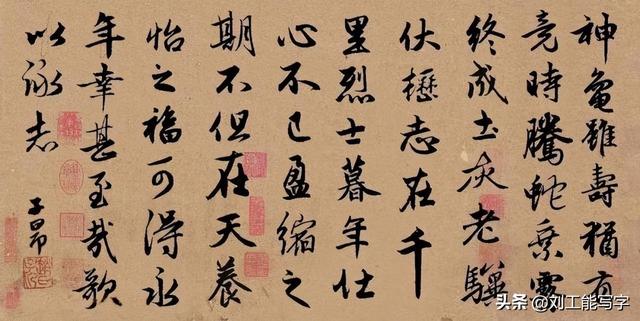 神龜雖壽猶有
竟時騰蛇乘霧
终成土灰老驥
伏櫪志在千
里烈士暮年壮
心不已盈縮之
期不但在天養
怡之福可得永
年幸甚至哉歌
以詠志
子昂
头条 @刘工能写字